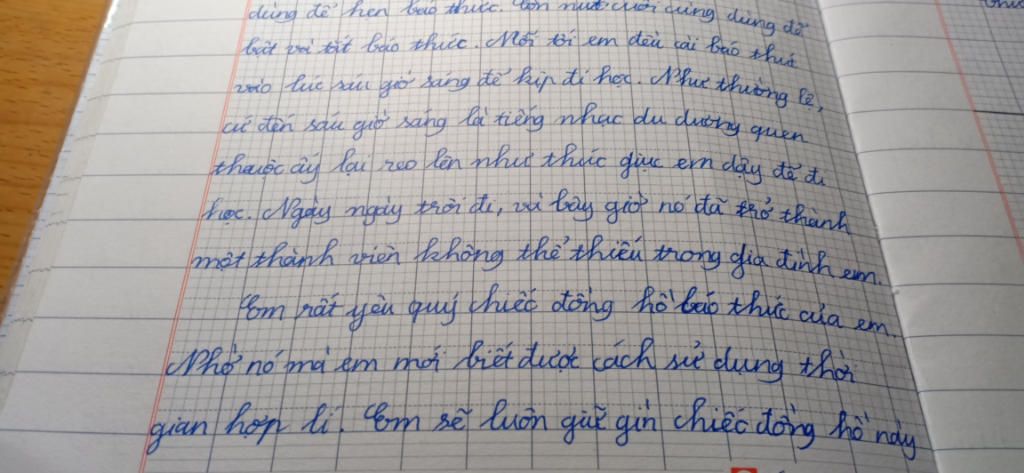 dùng để hẹn báo thức. Còn nút cuối cùng dùng để
bật và tắt báo thức. Mỗi tối em đều cài báo thức
vào lúc sáu giờ sáng để kịp đi học. Như thường lệ,
cứ đến sáu giờ sáng là tiếng nhạc du dương quen
thuộc ấy lại reo lên như thúc giục em dậy để đi
học. Ngày ngày trôi đi, và bây giờ nó đã trở thành
một thành viên không thể thiếu trong gia đình em.
Em rất yêu quý chiếc đồng hồ báo thức của em.
Nhờ nó mà em mới biết được cách sử dụng thời
gian hợp lí. Em sẽ luôn giữ gìn chiếc đồng hồ này